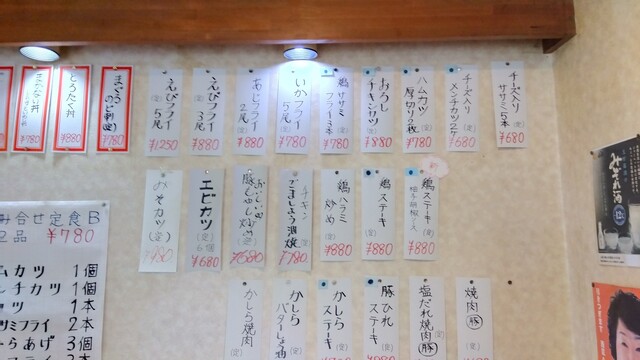 チーズ入り
ササミ5本
¥680
チーズ入り
メンチカツ2ケ(定)
¥680
ハムカツ
厚切り2枚(定)
¥780
おろし
チキンカツ(定)
¥880
鶏ササミ
フライ3本(定)
¥780
いかフライ
5尾(定)
¥780
あじフライ
2尾(定)
¥880
えびフライ
(定)3尾
¥880
えびフライ
(定)5尾
¥1250
まぐろ
のど刺(定)
¥780
とろたく丼
¥780
¥780
鶏ステーキ
柚子胡椒ソース
¥880
鶏ステーキ
(定)
¥880
鶏ハラミ
炒め(定)
¥880
チキン
ごましょう油焼(定)
¥780
エビカツ
(定)6個
¥680
みそカツ(定)
¥780
焼肉(豚)
塩だれ焼肉(豚)
(定)
豚ひれ
ステーキ
(定)
かしら
ステーキ
(定)
かしら
バターしょう油
(定)
かしら焼肉
(定)
み合せ定食B
品 ¥780
ムカツ 1個
ンチカツ 1個
カツ 1本
ツミフライ 2本
らあげ 3個
みぞれ酒